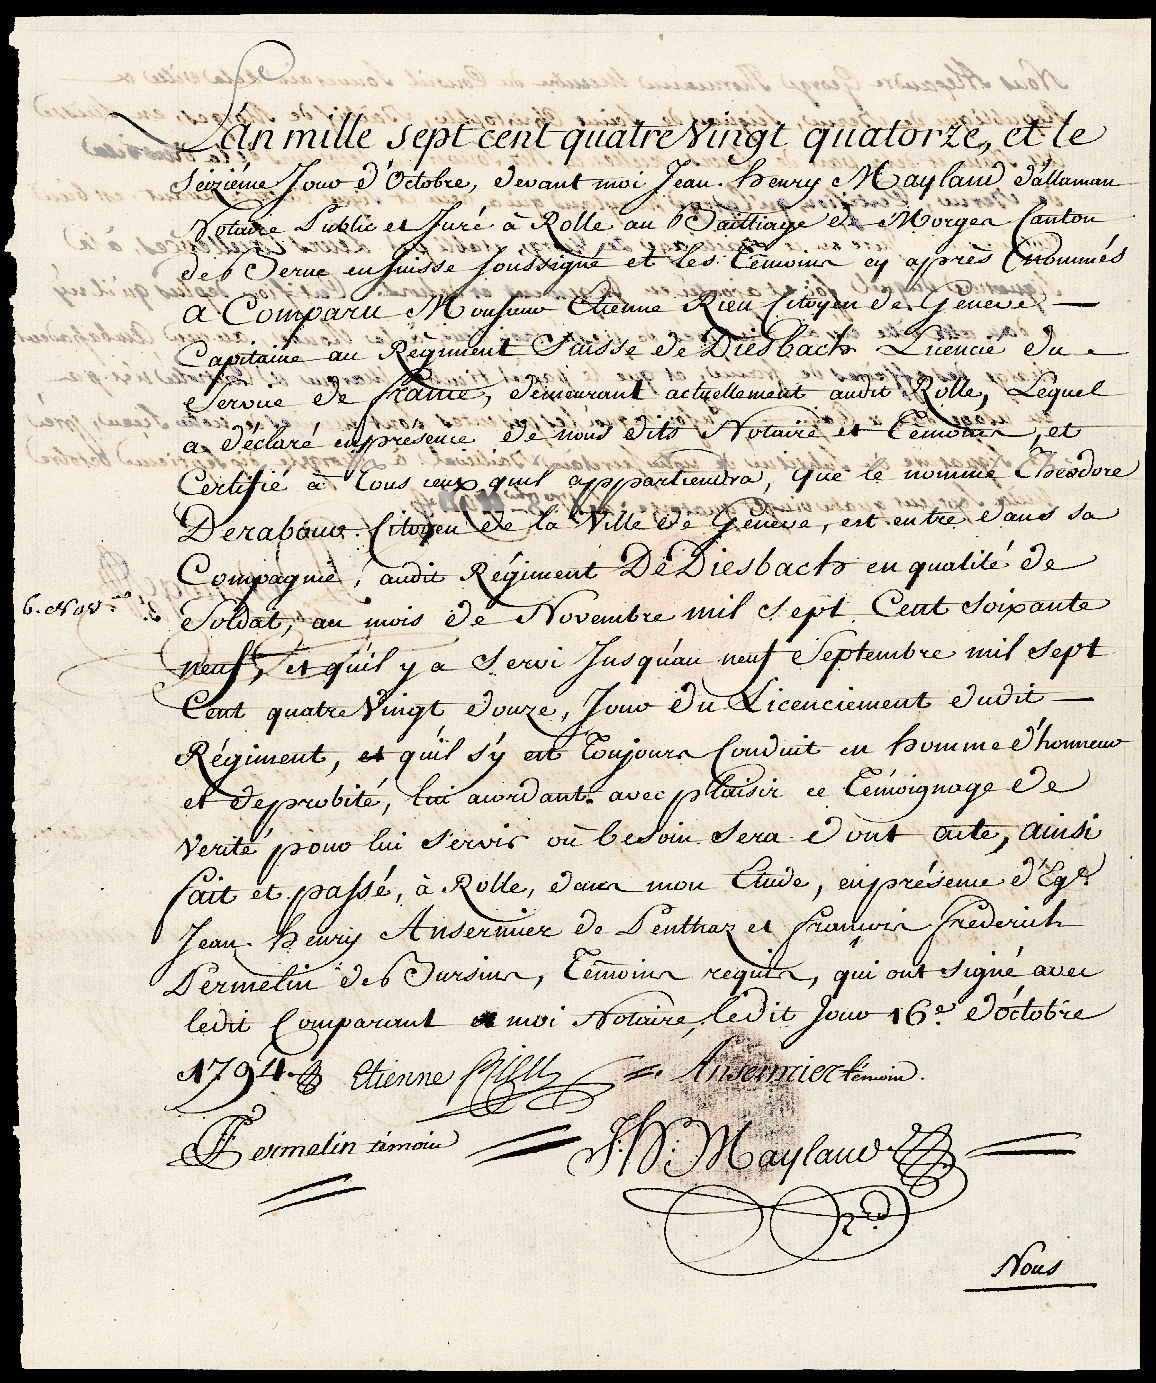 L'an mille sept cent quatre Vingt quatorze, et le
Seizième Jour d'Octobre, devant moi Jean-henry Mayland d'allaman
Notaire Public et Juré à Rolle au Bailliage de Morges Canton
de Berne en Suisse Soussigné et les Témoins cy après Nommés
a Comparu Monsieur Etienne Rieu Citoyen de Genève —
Capitaine au Régiment Suisse de Diesbach Licencié du
Service de france, demeurant actuellement audit Rolle, Lequel
a déclaré en présence de nous dits Notaire et Témoins, et
Certifié à Tous ceux qu'il appartiendra, que le nommé Théodore
Derabour Citoyen de la Ville de Genève, est entré dans sa
Compagnie, audit Régiment De Diesbach en qualité de
6. Nov.re
Soldat, au mois de Novembre mil sept Cent soixante
neuf, et qu'il y a servi Jusqu'au neuf Septembre mil sept
Cent quatre Vingt douze, Jour du Licenciement dudit —
Régiment, et qu'il s'y est Toujours Conduit en homme d'honneur
et de probité, lui accordant avec plaisir ce Témoignage de
Vérité pour lui servir où besoin sera dont acte, ainsi
fait et passé, à Rolle, dans mon Etude, en présence d'Egr.
Jean-henry Ansermier de Penthaz et François frederich
Permelin de Bursins, Témoins requis, qui ont signé avec
ledit Comparant et moi Notaire, ledit Jour 16e d'octobre
1794. Etienne Rieu Ansermier témoin.
FF Permelin témoin J: H: Mayland
Nous